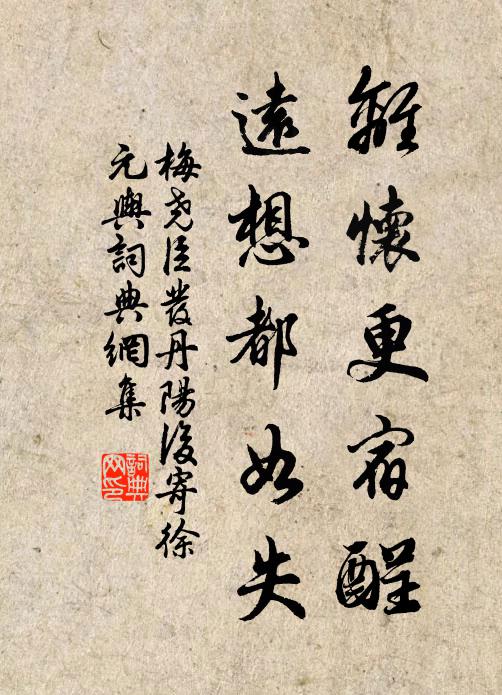 離懷更宿醒
遠想都如失
梅尧臣發丹陽後寄徐
元輿詞典網集
詞典网印